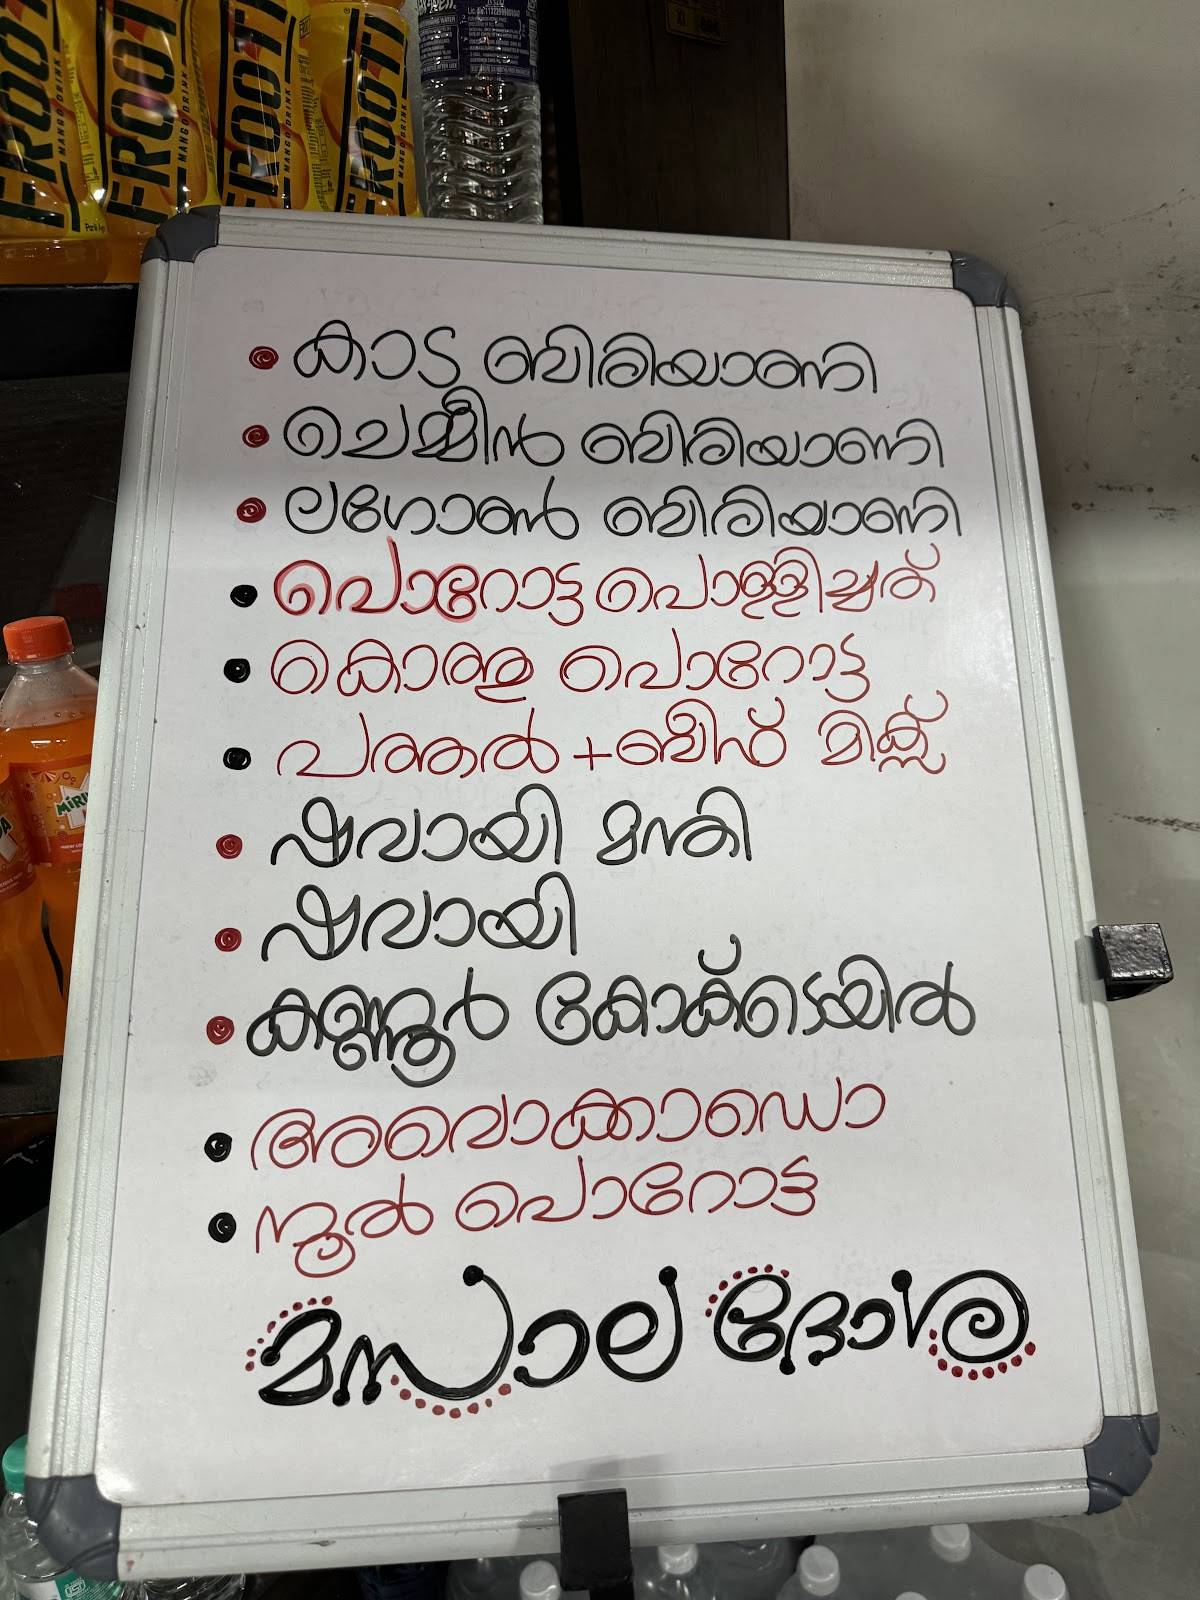 FROOTI
MANGO DRINK
FROOTI
MANGO DRINK
FROOTI
MANGO DRINK
FROOTI
MANGO DRINK
കാട ബിരിയാണി
ചെമ്മീൻ ബിരിയാണി
ലഗോൺ ബിരിയാണി
പൊറോട്ട പൊള്ളിച്ചത്
കൊത്തു പൊറോട്ട
പത്തൽ + ബീഫ് മിക്സ്
ഷവായി മന്തി
ഷവായി
കണ്ണൂർ കോക്ടെയിൽ
അവൊക്കാഡൊ
നൂൽ പൊറോട്ട
മസാല ദോശ